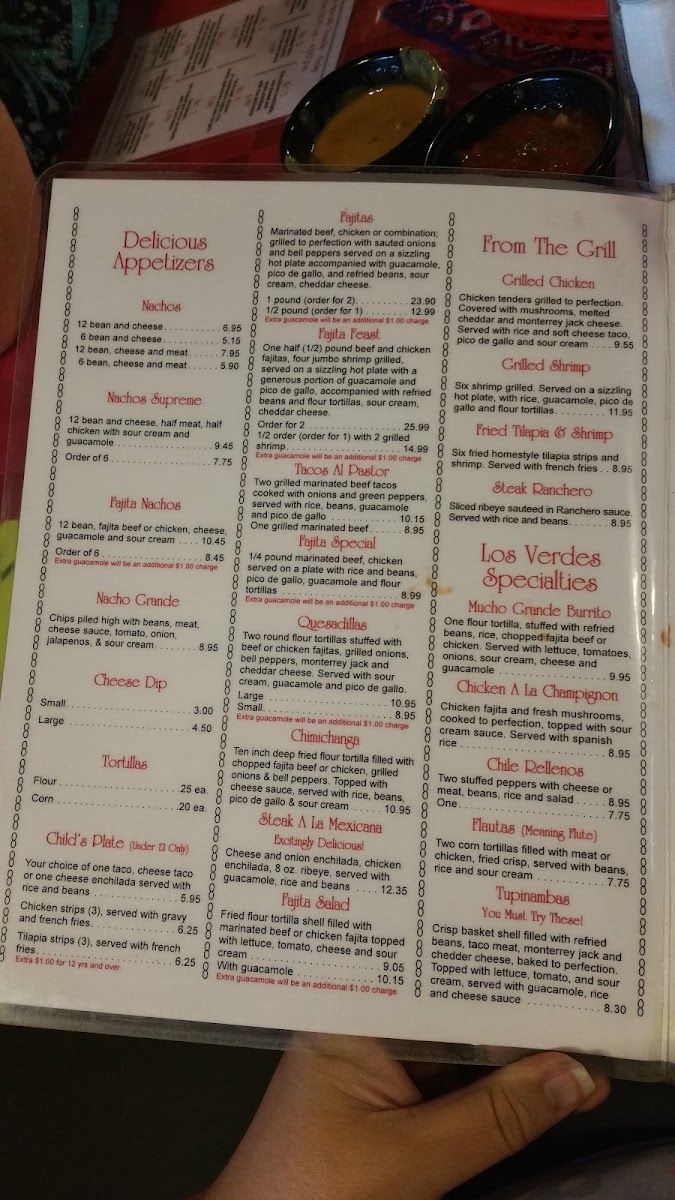 Delicious
Appetizers
Nachos
12 bean and cheese . . . . . . . . . . 6.95
6 bean and cheese . . . . . . . . . . 5.15
12 bean, cheese and meat . . . . . 7.95
6 bean, cheese and meat . . . . . 5.90
Nachos Supreme
12 bean and cheese, half meat, half
chicken with sour cream and
guacamole . . . . . . . . . . 9.45
Order of 6 . . . . . . . . . . 7.75
Fajita Nachos
12 bean, fajita beef or chicken, cheese,
guacamole and sour cream . . . . . 10.45
Order of 6 . . . . . . . . . . 8.45
Extra guacamole will be an additional $1.00 charge
Nacho Grande
Chips piled high with beans, meat,
cheese sauce, tomato, onion,
jalapenos, & sour cream . . . . . . . . 8.95
Cheese Dip
Small . . . . . . . . . . 3.00
Large . . . . . . . . . . 4.50
Tortillas
Flour . . . . . . . . . . .25 ea.
Corn . . . . . . . . . . .20 ea.
Child's Plate (Under 12 Only)
Your choice of one taco, cheese taco
or one cheese enchilada served with
rice and beans . . . . . . . . . . 5.95
Chicken strips (3), served with gravy
and french fries . . . . . . . . . . 6.25
Tilapia strips (3), served with french
fries . . . . . . . . . . 6.25
Extra $1.00 for 12 yrs and over
Fajitas
Marinated beef, chicken or combination;
grilled to perfection with sauted onions
and bell peppers served on a sizzling
hot plate accompanied with guacamole,
pico de gallo, and refried beans, sour
cream, cheddar cheese.
1 pound (order for 2) . . . . . . . . . . 23.90
1/2 pound (order for 1) . . . . . . . . . . 12.99
Extra guacamole will be an additional $1.00 charge
Fajita Feast
One half (1/2) pound beef and chicken
fajitas, four jumbo shrimp grilled,
served on a sizzling hot plate with a
generous portion of guacamole and
pico de gallo, accompanied with refried
beans and flour tortillas, sour cream,
cheddar cheese.
Order for 2 . . . . . . . . . . 25.99
1/2 order (order for 1) with 2 grilled
shrimp . . . . . . . . . . 14.99
Extra guacamole will be an additional $1.00 charge
Tacos Al Pastor
Two grilled marinated beef tacos
cooked with onions and green peppers,
served with rice, beans, guacamole
and pico de gallo . . . . . . . . . . 10.15
One grilled marinated beef . . . . . 8.95
Fajita Special
1/4 pound marinated beef, chicken
served on a plate with rice and beans,
pico de gallo, guacamole and flour
tortillas . . . . . . . . . . 8.99
Extra guacamole will be an additional $1.00 charge
Quesadillas
Two round flour tortillas stuffed with
beef or chicken fajitas, grilled onions,
bell peppers, monterrey jack and
cheddar cheese. Served with sour
cream, guacamole and pico de gallo.
Large . . . . . . . . . . 10.95
Small . . . . . . . . . . 8.95
Extra guacamole will be an additional $1.00 charge
Chimichanga
Ten inch deep fried flour tortilla filled with
chopped fajita beef or chicken, grilled
onions & bell peppers. Topped with
cheese sauce, served with rice, beans,
pico de gallo & sour cream . . . . . 10.95
Steak A La Mexicana
Excitingly Delicious!
Cheese and onion enchilada, chicken
enchilada, 8 oz. ribeye, served with
guacamole, rice and beans . . . . 12.35
Fajita Salad
Fried flour tortilla shell filled with
marinated beef or chicken fajita topped
with lettuce, tomato, cheese and sour
cream . . . . . . . . . . 9.05
With guacamole . . . . . . . . . . 10.15
Extra guacamole will be an additional $1.00 charge
From The Grill
Grilled Chicken
Chicken tenders grilled to perfection.
Covered with mushrooms, melted
cheddar and monterrey jack cheese.
Served with rice and soft cheese taco,
pico de gallo and sour cream . . . . 9.55
Grilled Shrimp
Six shrimp grilled. Served on a sizzling
hot plate, with rice, guacamole, pico de
gallo and flour tortillas . . . . . . . . . 11.95
Fried Tilapia & Shrimp
Six fried homestyle tilapia strips and
shrimp. Served with french fries . . 8.95
Steak Ranchero
Sliced ribeye sauteed in Ranchero sauce.
Served with rice and beans . . . . . . . 8.95
Los Verdes
Specialties
Mucho Grande Burrito
One flour tortilla, stuffed with refried
beans, rice, chopped fajita beef or
chicken. Served with lettuce, tomatoes,
onions, sour cream, cheese and
guacamole . . . . . . . . . . 9.95
Chicken A La Champignon
Chicken fajita and fresh mushrooms,
cooked to perfection, topped with sour
cream sauce. Served with spanish
rice . . . . . . . . . . 8.95
Chile Rellenos
Two stuffed peppers with cheese or
meat, beans, rice and salad . . . . . 8.95
One . . . . . . . . . . 7.75
Flautas (Meaning Flute)
Two corn tortillas filled with meat or
chicken, fried crisp, served with beans,
rice and sour cream . . . . . . . . . . 7.75
Tupinambas
You Must Try These!
Crisp basket shell filled with refried
beans, taco meat, monterrey jack and
chedder cheese, baked to perfection.
Topped with lettuce, tomato, and sour
cream, served with guacamole, rice
and cheese sauce . . . . . . . . . . 8.30